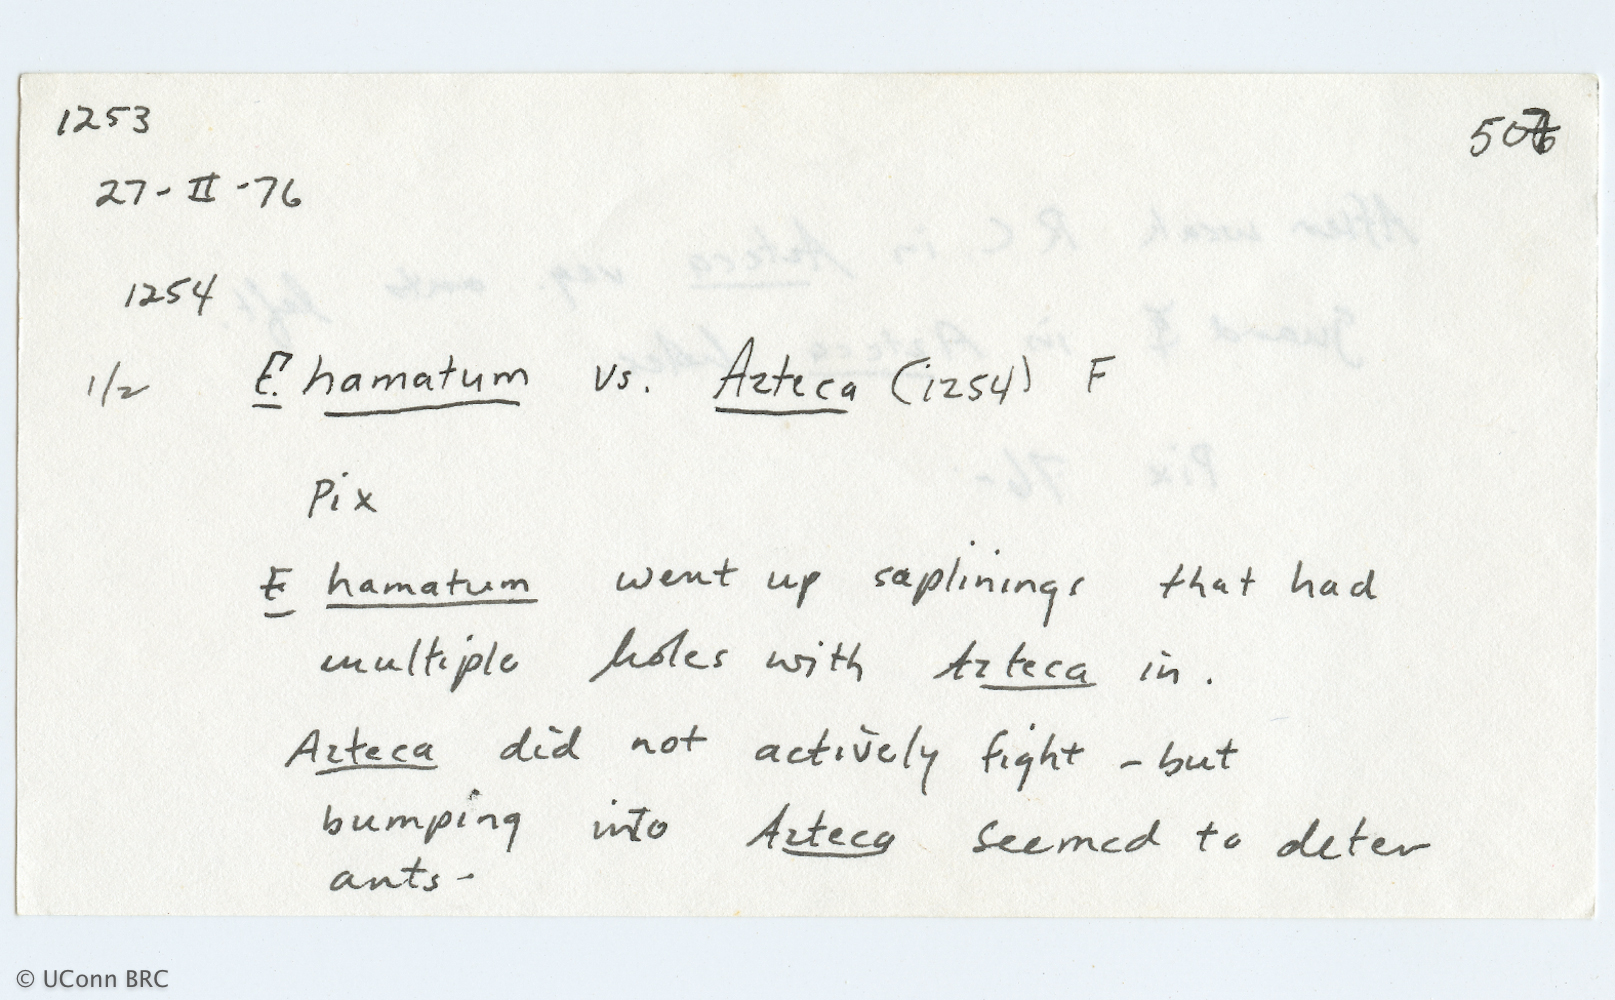 1253
27-II-76
1254
1/2 E. hamatum vs. Azteca (1254) F
Pix
E hamatum went up saplinings that had
multiple holes with Azteca in.
Azteca did not actively fight - but
bumping into Azteca seemed to deter
ants-
© UConn BRC